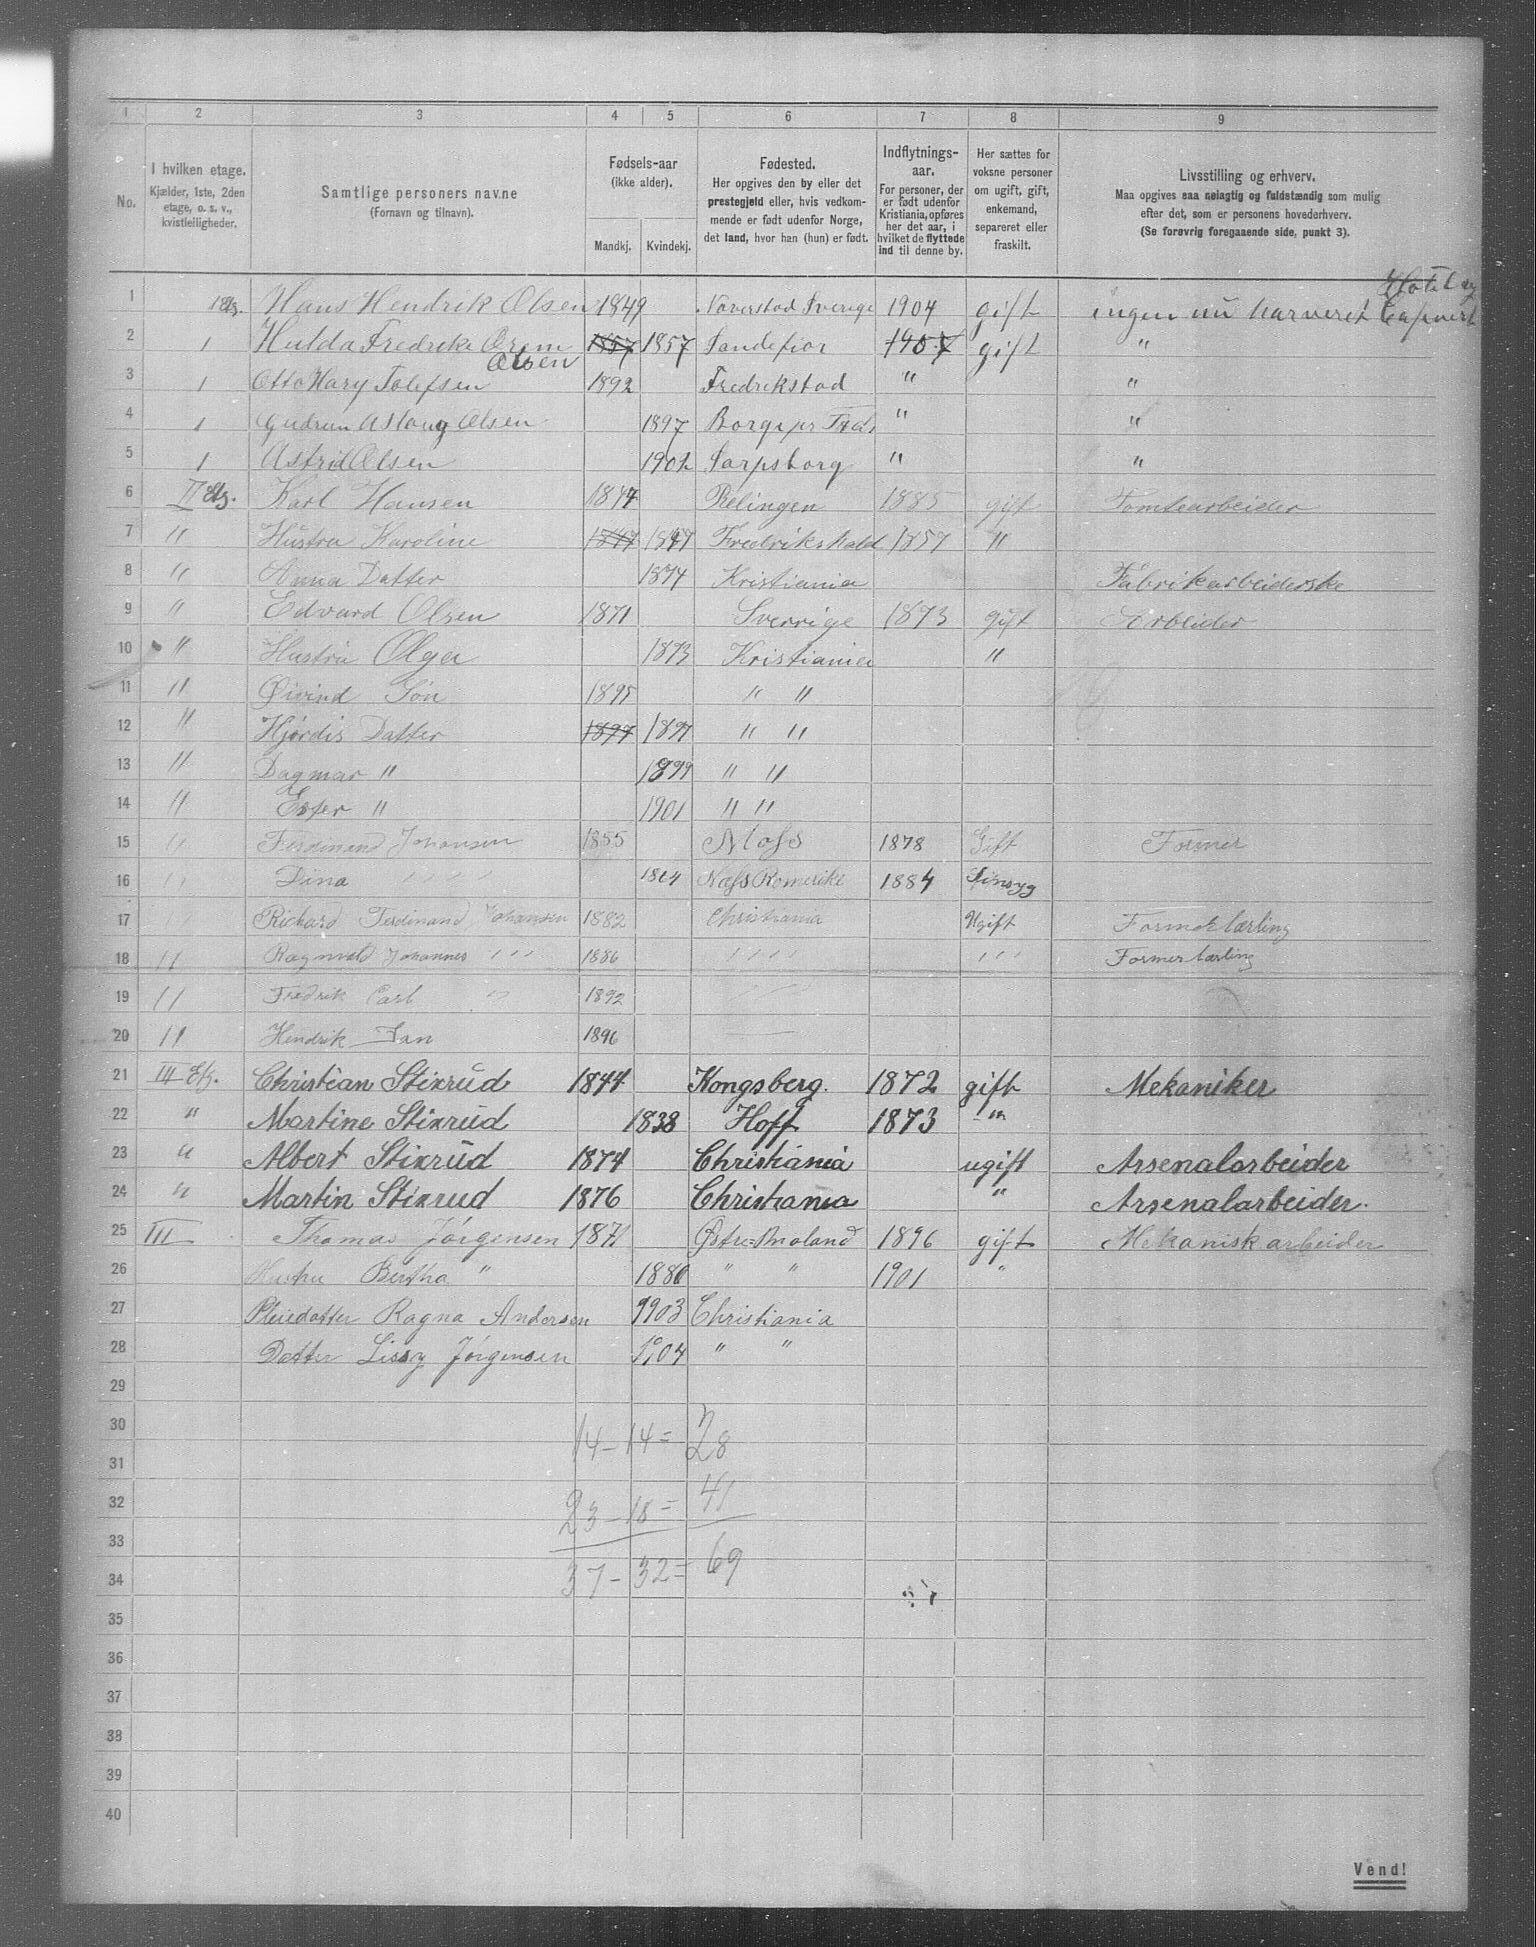 1 2 3 4 5 6 7 8 9
No.
I hvilken etage.
Kjælder, 1ste, 2den
etage, o. s. v.,
kvistleiligheder.
Samtlige personers navne
(Fornavn og tilnavn).
Fødsels-aar
(ikke alder).
Mandkj. Kvindekj.
Fødested.
Her opgives den by eller det
prestegjeld eller, hvis vedkom-
mende er født udenfor Norge,
det land, hvor han (hun) er født.
Indflytnings-
aar.
For personer, der
er født udenfor
Kristiania, opføres
her det aar, i
hvilket de flyttede
ind til denne by.
Her sættes for
voksne personer
om ugift, gift,
enkemand,
separeret eller
fraskilt.
Livsstilling og erhverv.
Maa opgives saa nøiagtig og fuldstændig som mulig
efter det, som er personens hovederhverv.
(Se forøvrig foregaaende side, punkt 3).
Hotel og
1 1 Etg. Hans Hendrik Olsen 1849 Sverige 1904 gift ingen nu harveret
2 1 Hulda Fredreke 1857 1857 Sandefior 1907 gift "
Olsen
3 1 Otto Hary Tolefsen 1892 Fredrekstad " "
4 1 Gudrun Aslaug Olsen 1897 Borge pr " "
5 1 Astrid Olsen 1902 Sarpsborg " "
6 II Etg. Karl Hansen 1844 Relingen 1885 gift Tomtearbeider
7 " Hustru Karoline 1847 1847 Fredrikshald 1857 "
8 " Anna Datter 1874 Kristiania Fabrikarbeiderske
9 " Edvard Olsen 1871 Sverrige 1873 gift Arbeider
10 " Hustru Olga 1873 Kristiania "
11 " Øivind Søn 1895 " "
12 " Hjørdis Datter 1897 1897 " "
13 " Dagmar " 1899 " "
14 " Ester " 1901 " "
15 " Ferdinand Johansen 1855 Moss 1878 Gift Former
16 " Dina " " 1864 Næss Romerike 1884
17 " Richard Ferdinand Johansen 1882 Christiania Ugift Formerlærling
18 " Ragnvald Johannes " " 1886 " " " " Formerlærling
19 " Fredrik Carl " 1892 " "
20 " Hendrik Jan 1896
21 III Etg. Christian Stixrud 1844 Kongsberg. 1872 gift Mekaniker
22 " Martine Stixrud 1838 Hoff 1873 "
23 " Albert Stixrud 1874 Christiania ugift Arsenalarbeider
24 " Martin Stixrud 1876 Christiania " Arsenalarbeider.
25 III Thomas Jørgensen 1871 Østre=Moland 1896 gift Mekanisk arbeider
26 Hustru Bertha " 1880 " " 1901 "
27 Pleiedatter Ragna Andersen 1903 Christiania
28 Datter Lissy Jørgensen 1904 " "
29
30 14 - 14 = 28
31
32 23 - 18 = 41
33
34 37 - 32 = 69
35
36
37
38
39
40
Vend!